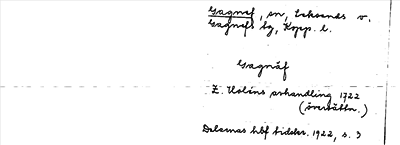 Gagnef, sn, Leksands o.
Gagnefs tg, Kopp. l.
Gagnäf
Z. Holéns avhandling 1722
(översättn.)
Dalarnas hbf tidskr. 1922, s. 3